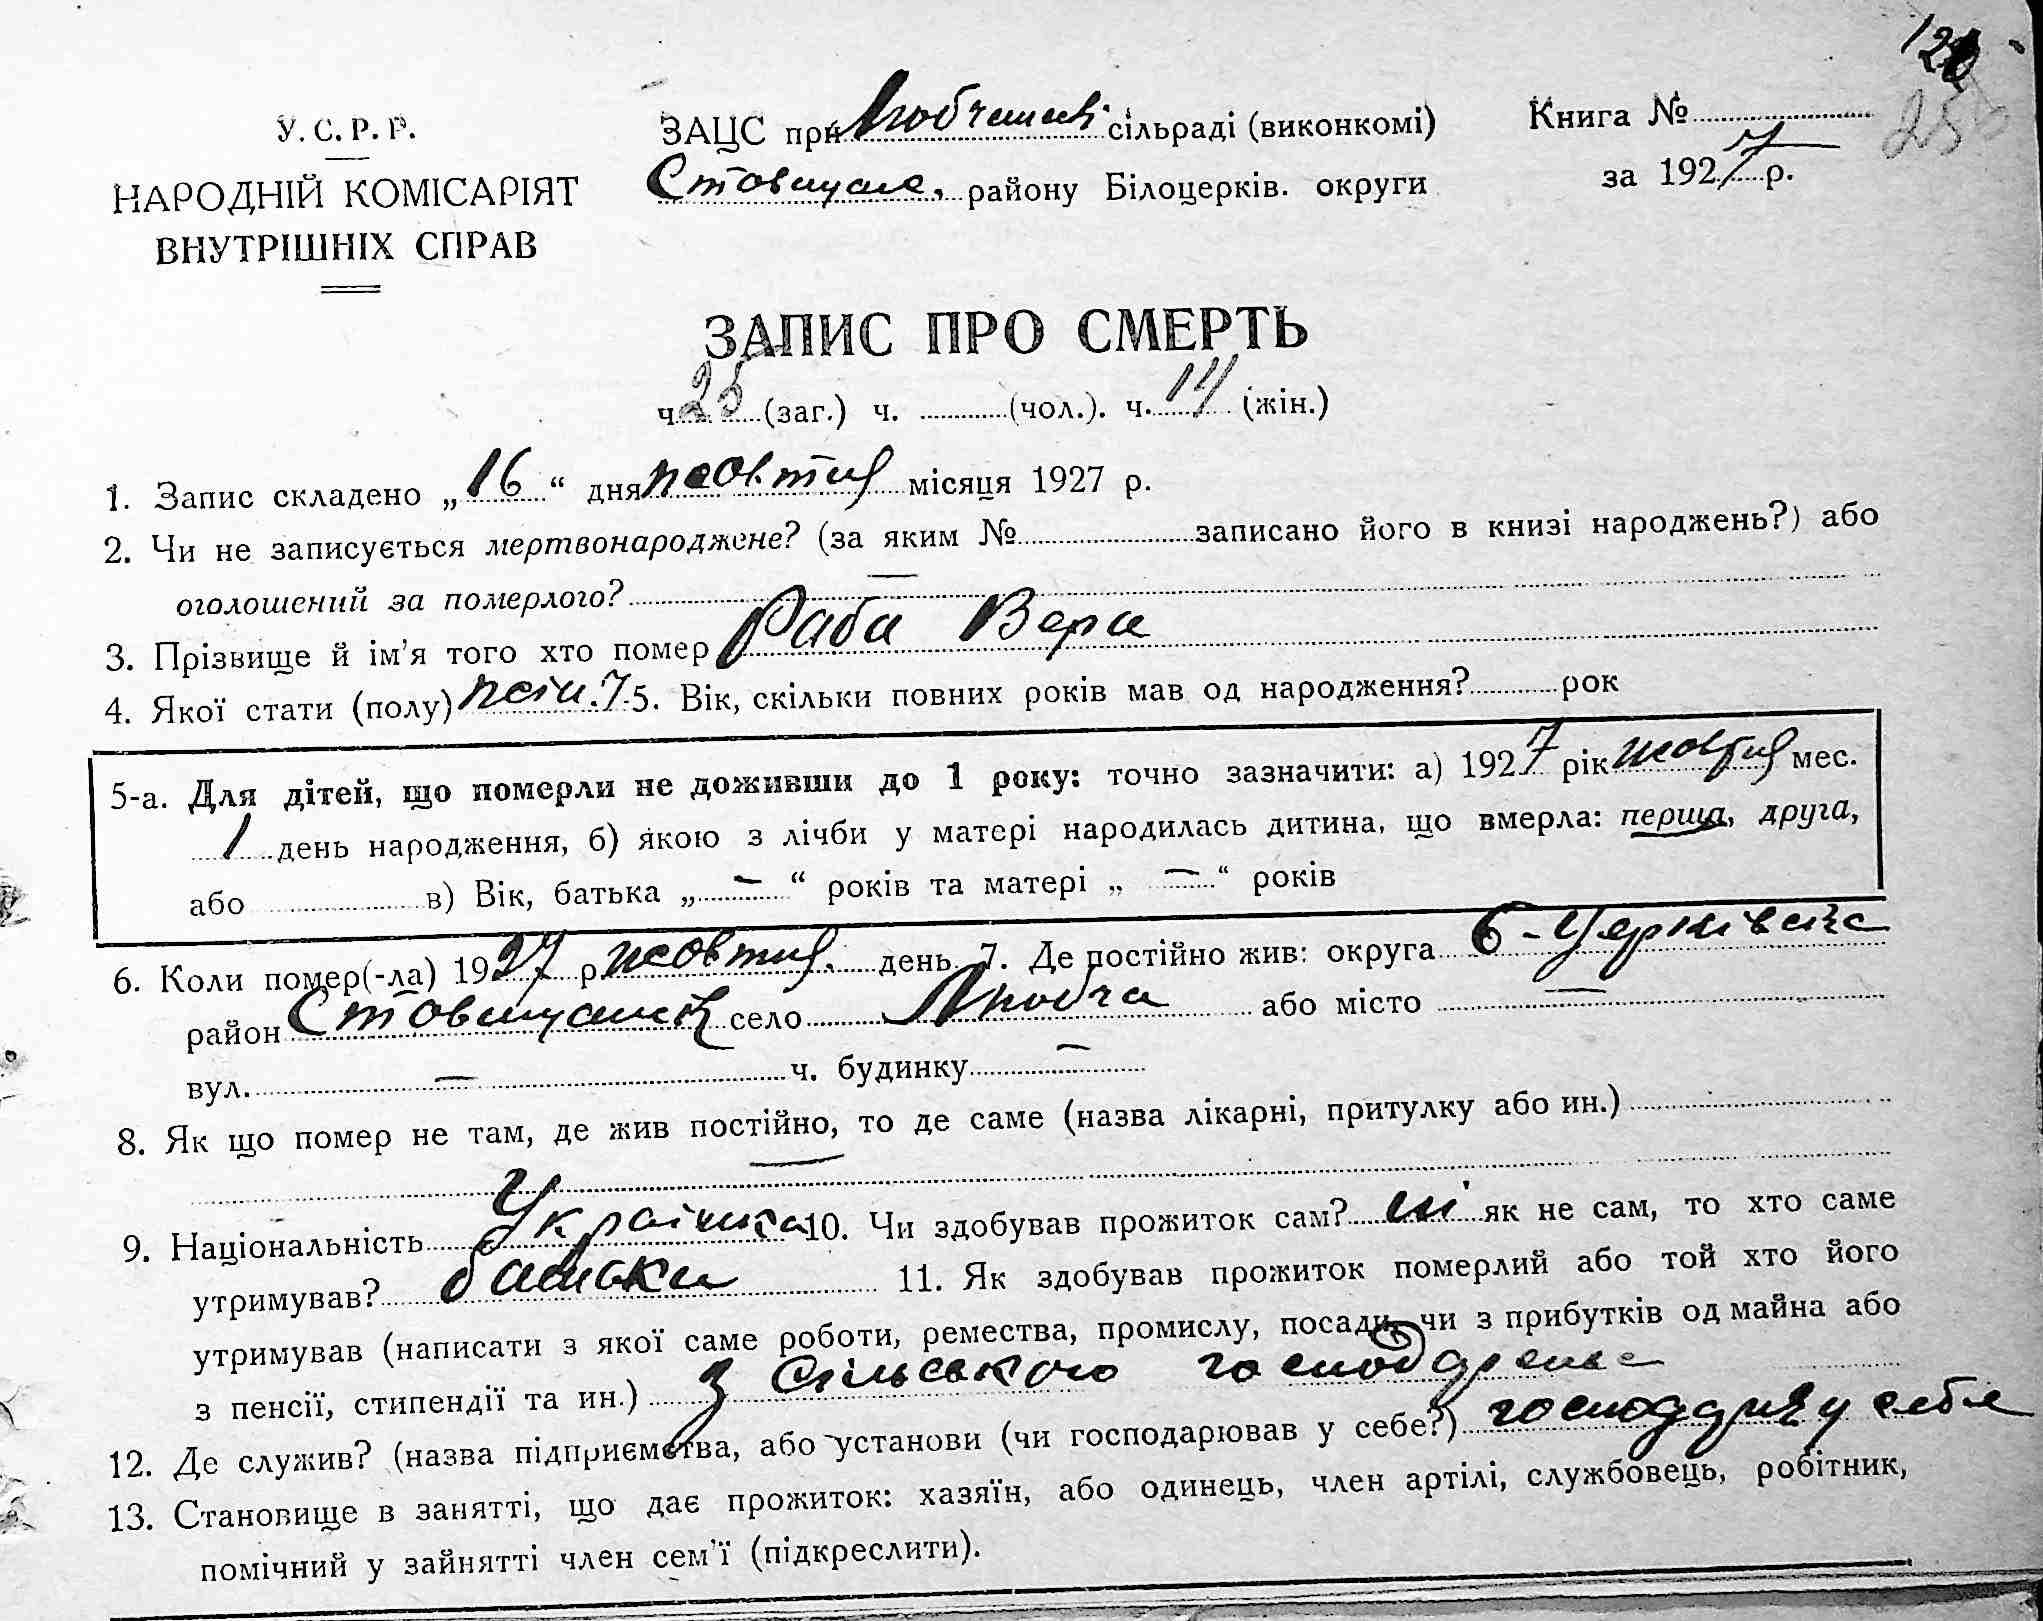 У.С.Р.Р.
НАРОДНІЙ КОМІСАРІЯТ
ВНУТРІШНІХ СПРАВ
ЗАЦС при сільраді (виконкомі)
Стовищале, району Білоцерків. округи
Книга №
за 1927 р.
ЗАПИС ПРО СМЕРТЬ
ч. 25 (заг.) ч. (чол.). ч. 14 (жін.)
1. Запис складено „16“ дня жовтня місяця 1927 р.
2. Чи не записується мертвонароджене? (за яким № записано його в книзі народжень?) або
оголошений за померлого? —
3. Прізвище й ім'я того хто помер Раба Вера
4. Якої стати (полу) жін. 5. Вік, скільки повних років мав од народження? рок
5-а. Для дітей, що померли не доживши до 1 року: точно зазначити: а) 1927 рік жовтня мес.
1 день народження, б) якою з лічби у матері народилась дитина, що вмерла: перша, друга,
або в) Вік, батька „ — “ років та матері „ — “ років
6. Коли помер(-ла) 1927 р. жовтня день 7. Де постійно жив: округа Б-Церківська
район село Любча або місто —
вул. — ч. будинку —
8. Як що помер не там, де жив постійно, то де саме (назва лікарні, притулку або ин.)
—
9. Національність Українка 10. Чи здобував прожиток сам? ні як не сам, то хто саме
утримував? батьки 11. Як здобував прожиток померлий або той хто його
утримував (написати з якої саме роботи, ремества, промислу, посади, чи з прибутків од майна або
з пенсії, стипендії та ин.) З сільського
12. Де служив? (назва підприємства, або установи (чи господарював у себе?) у себе
13. Становище в занятті, що дає прожиток: хазяїн, або одинець, член артілі, службовець, робітник,
помічний у зайнятті член сем'ї (підкреслити).